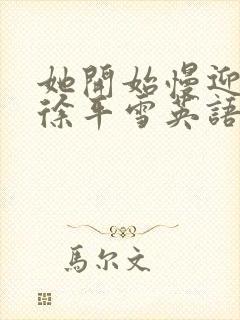 她開始慢迎
徐平雪英語
馬尔文